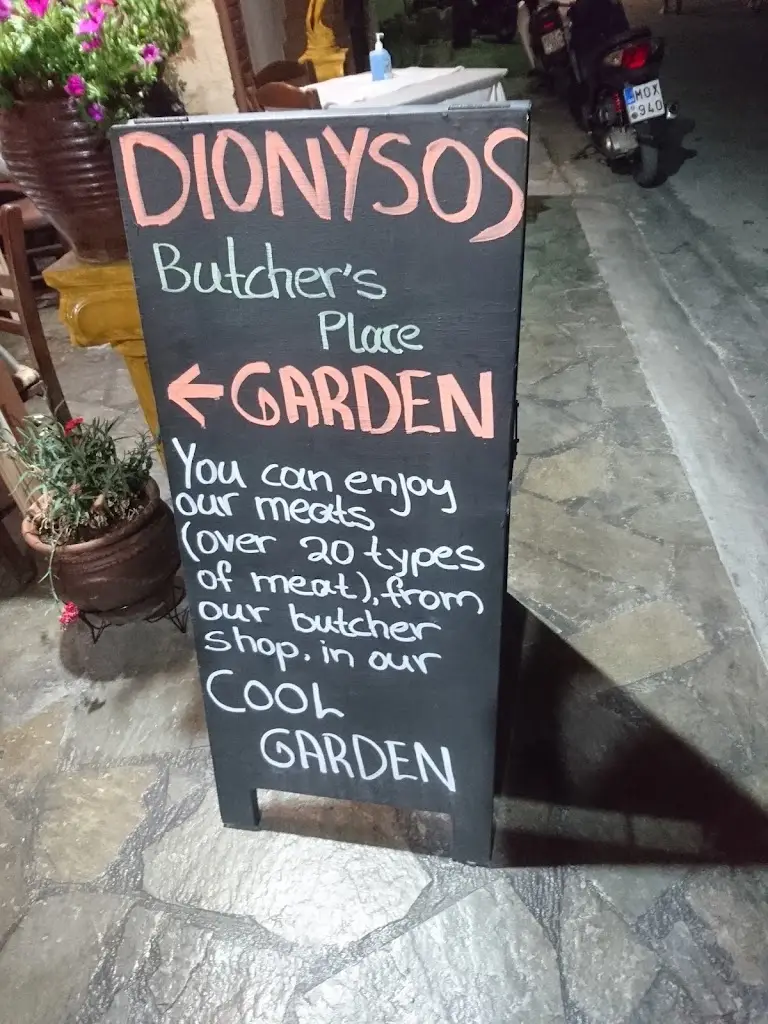 DIONYSOS
Butcher's
Place
←GARDEN
You can enjoy
our meats
(over 20 types
of meat), from
our butcher
shop. in our
COOL
GARDEN
MOX
940